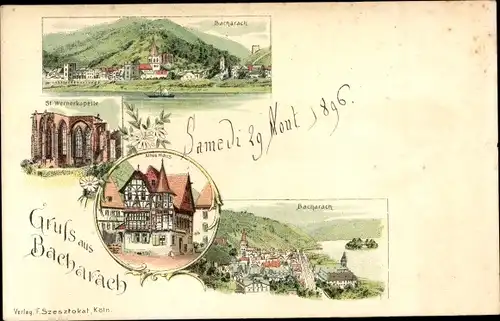 Bacharach
St. Wernerkapelle
Samedi 29 Août 1896.
Altes Haus
Bacharach
Gruss aus
Bacharach
Verlag. F. Szesztokat, Köln.